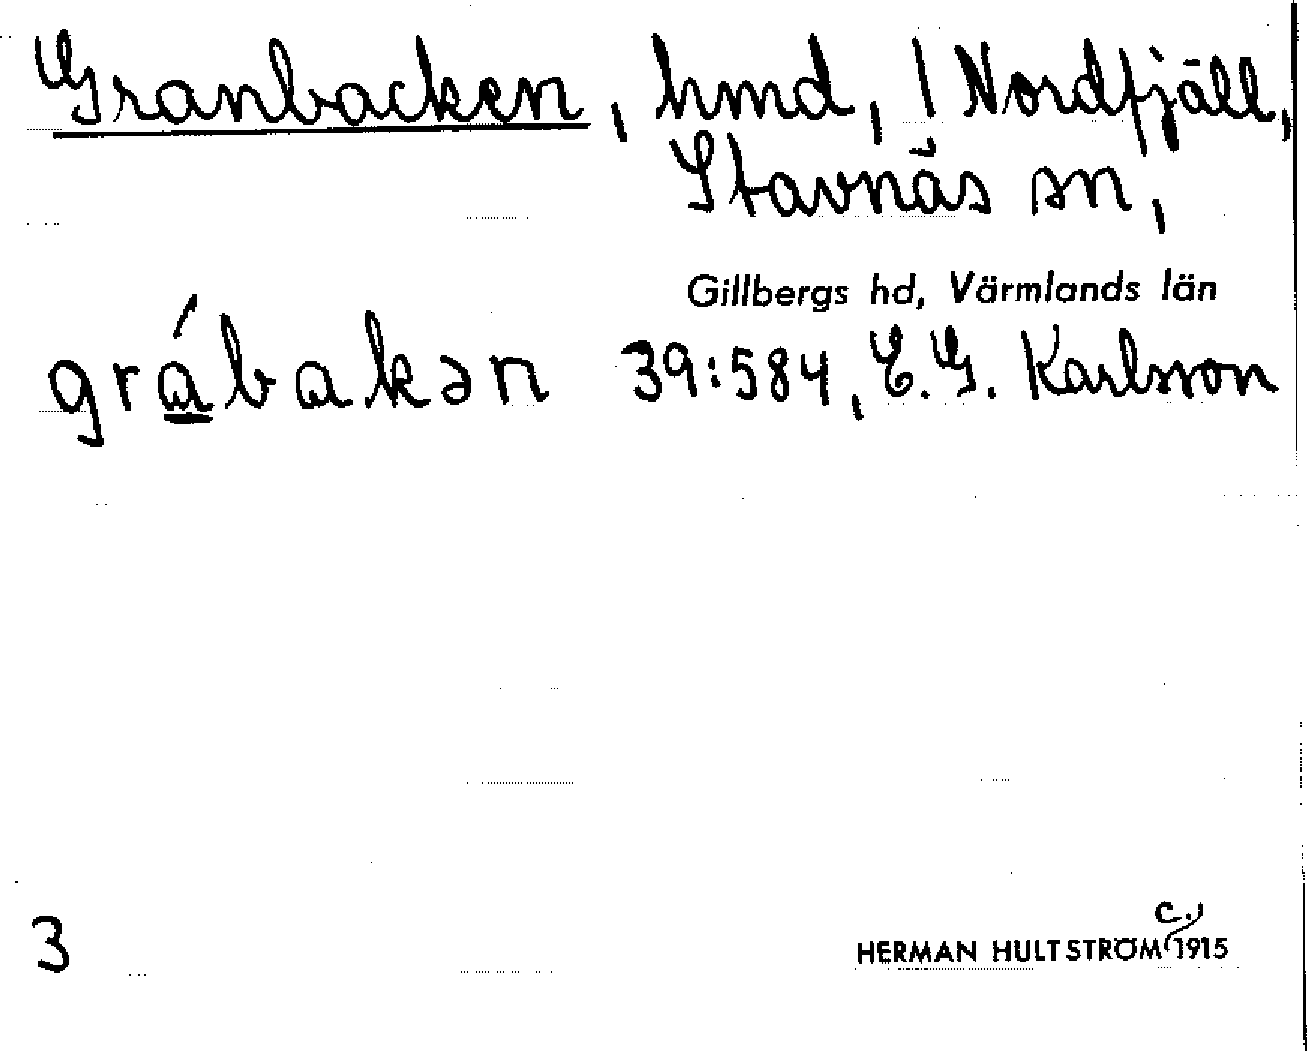 Granbacken, hmd, / Nordfjäll,
Stavnäs sn,
Gillbergs hd, Värmlands län
grábakən 39:584, E.G. Karlsson
3
HERMAN HULTSTRÖM c., 1915